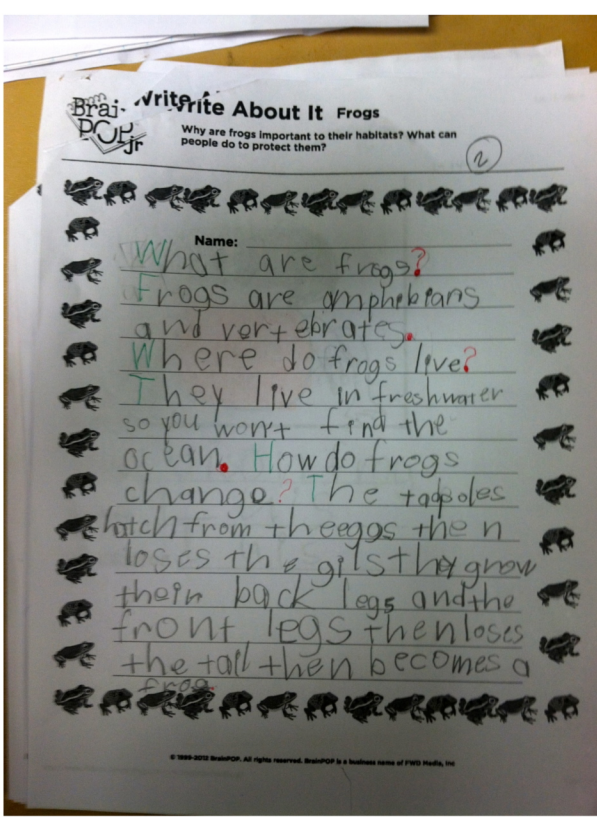 Brain
POP
jr
Write About It Frogs
Why are frogs important to their habitats? What can
people do to protect them?
2
Name:
What are frogs?
Frogs are amphibians
and vertebrates.
Where do frogs live?
They live in freshwater
so you won't find the
ocean. How do frogs
change? The tadpoles
hatch from the eggs then
loses the gils they grow
their back legs and the
front legs then loses
the tail then becomes a
frog.
© 1999-2012 BrainPOP. All rights reserved. BrainPOP is a business name of FWD Media, Inc